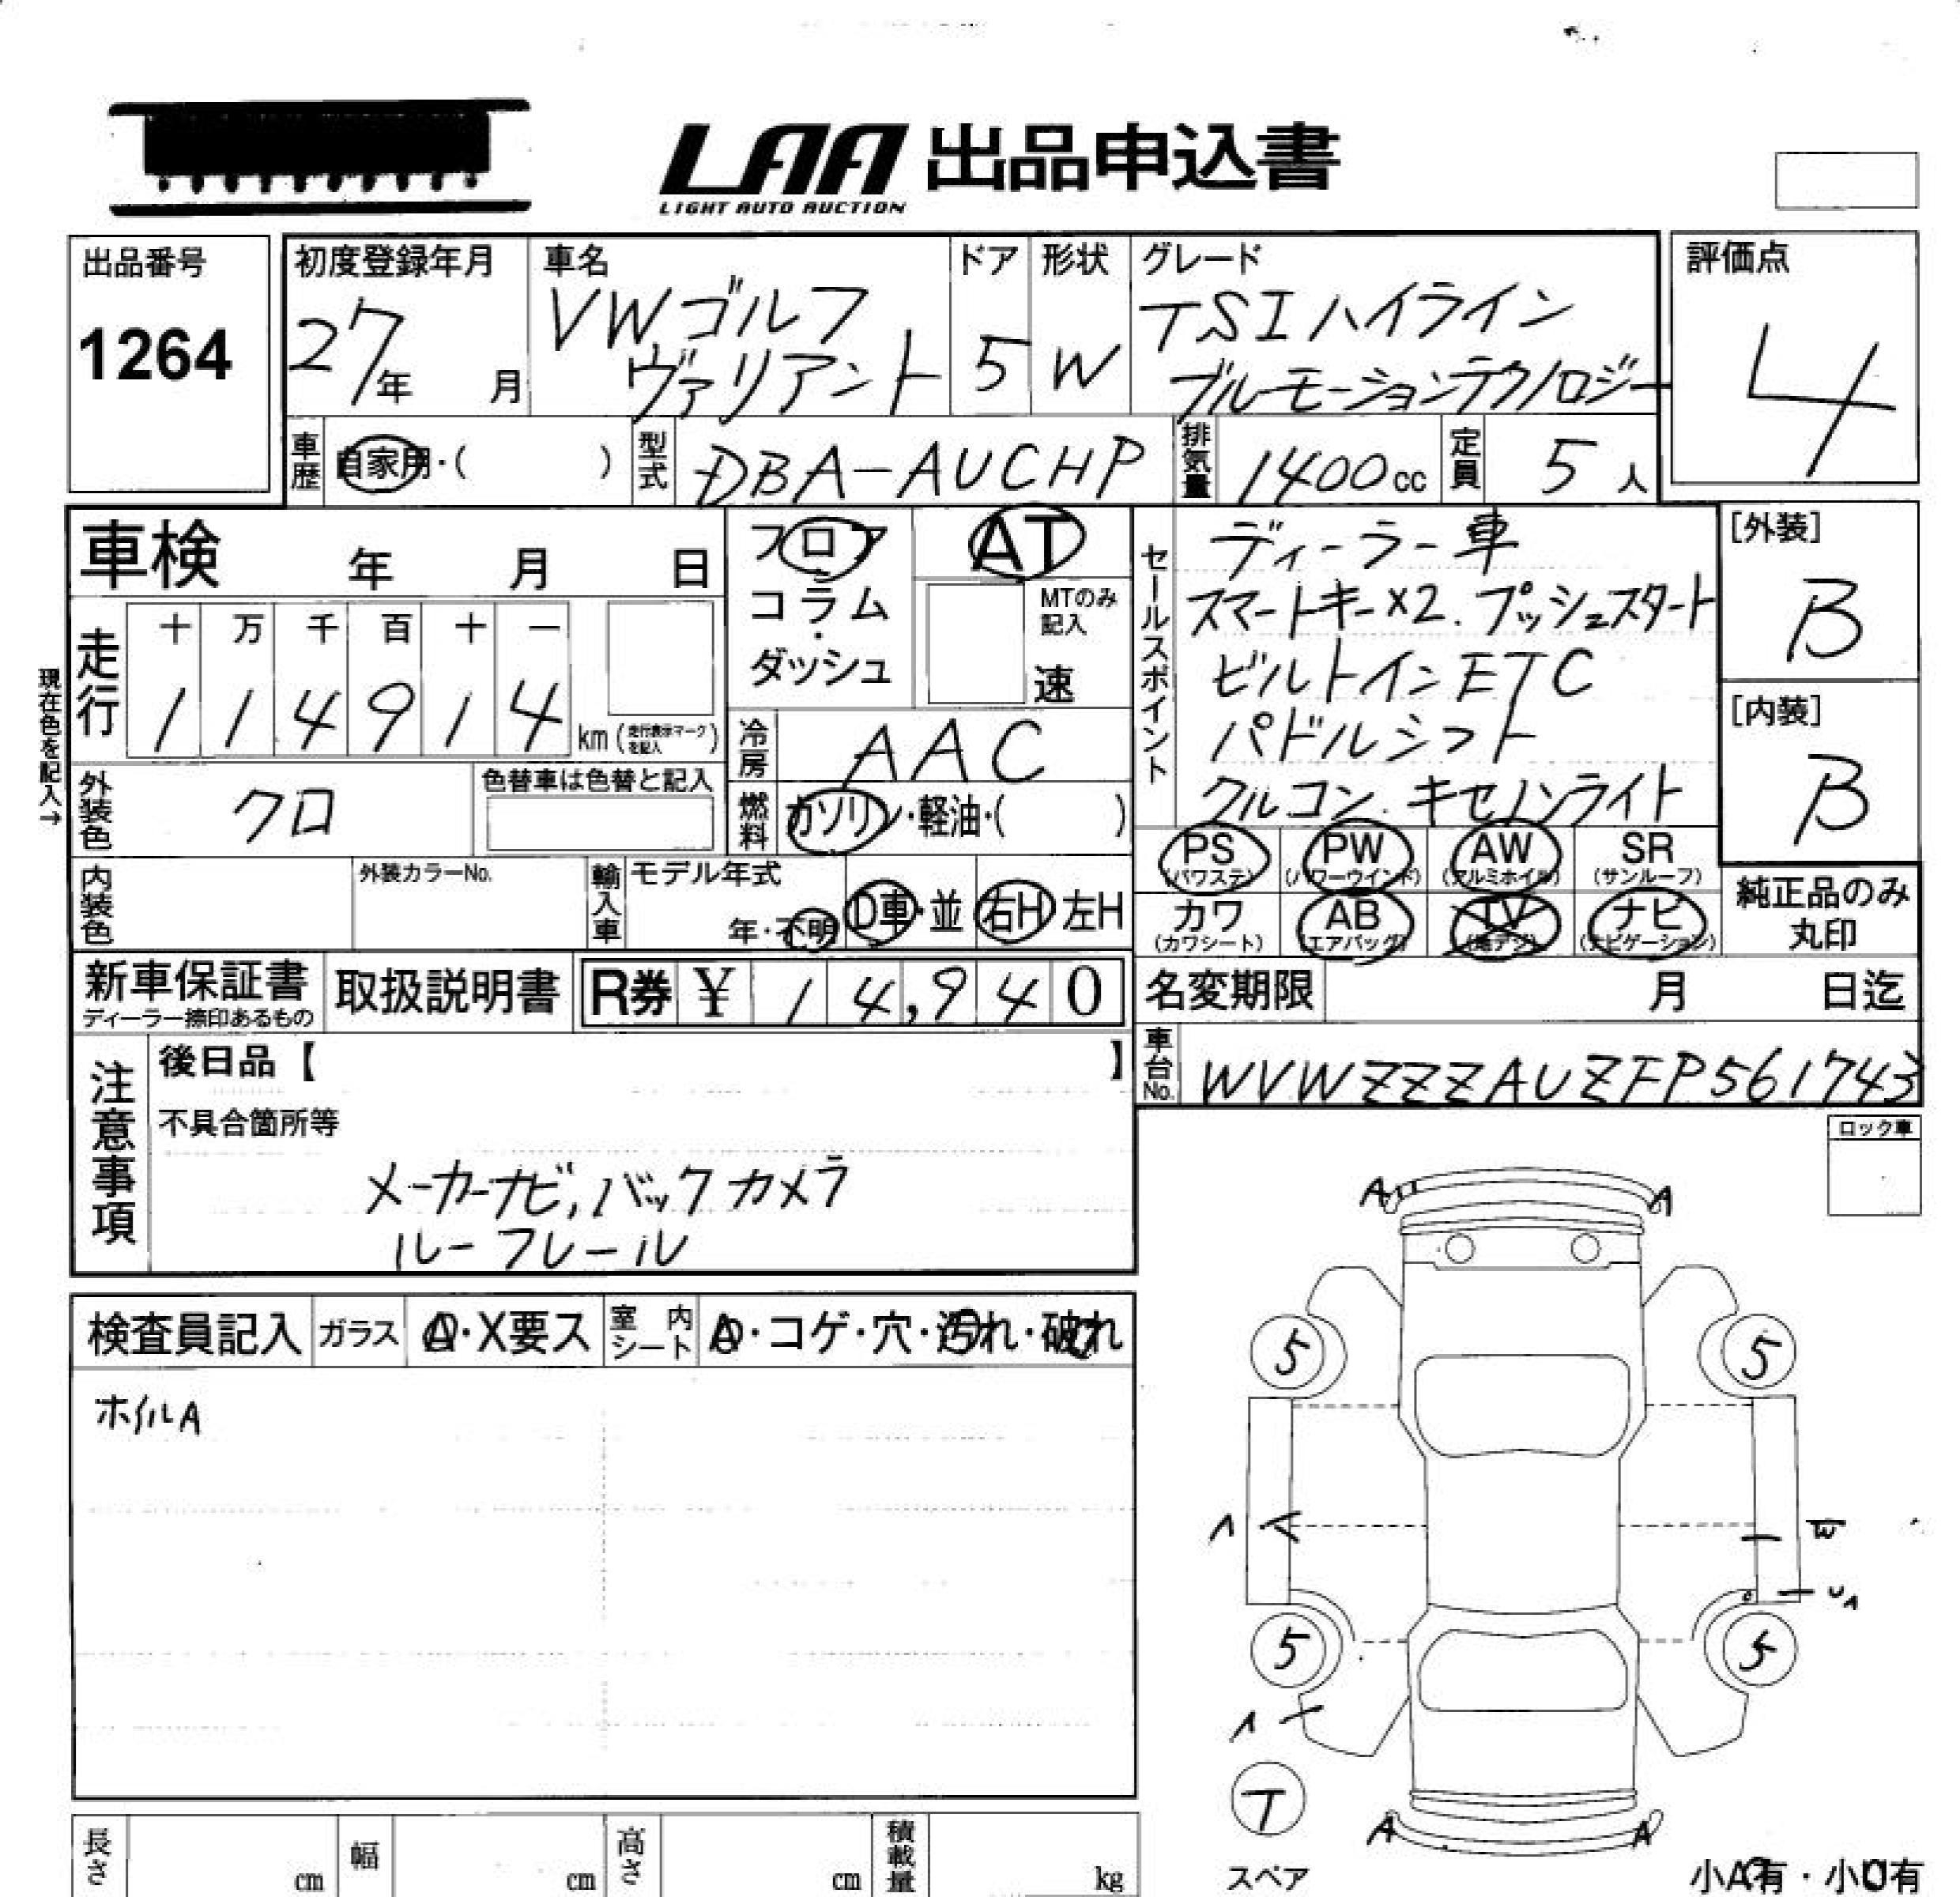 LAA 出品申込書
LIGHT AUTO AUCTION
出品番号
1264
初度登録年月
27年 月
車名
VWゴルフ
ヴァリアント
ドア
5
形状
W
グレード
TSIハイライン
ブルーモーションテクノロジー
評価点
4
車歴
自家用・( )
型式
DBA-AUCHP
排気量
1400cc
定員
5人
車検 年 月 日
現在色を記入→
走行
十 万 千 百 十 一
1 1 4 9 1 4 km (走行表示マークを記入)
外装色
クロ
色替車は色替と記入
内装色
外装カラーNo.
輸入車
モデル年式
年・不明
D車・並
右H 左H
フロア
・
コラム
・
ダッシュ
AT
MTのみ
記入
速
冷房
AAC
燃料
ガソリン・軽油・( )
セールスポイント
ディーラー車
スマートキー×2. プッシュスタート
ビルトインETC
パドルシフト
クルコン. キセノンライト
[外装]
B
[内装]
B
PS
(パワステ)
PW
(パワーウインド)
AW
(アルミホイル)
SR
(サンルーフ)
カワ
(カワシート)
AB
(エアバッグ)
TV
(地デジ)
ナビ
(ナビゲーション)
純正品のみ
丸印
新車保証書
ディーラー捺印あるもの
取扱説明書
R券 ¥ 14,940
名変期限 月 日迄
車台No.
WVWZZZAUZFP561743
注意事項
後日品【 】
不具合箇所等
メーカーナビ, バックカメラ
ルーフレール
ロック車
検査員記入
ガラス
A・X要ス
室内
シート
A・コゲ・穴・汚れ・破れ
ホイルA
A A
5 5
A W
UA
5 5
A
T
スペア
A A
小A有・小U有
長さ cm
幅 cm
高さ cm
積載量 kg